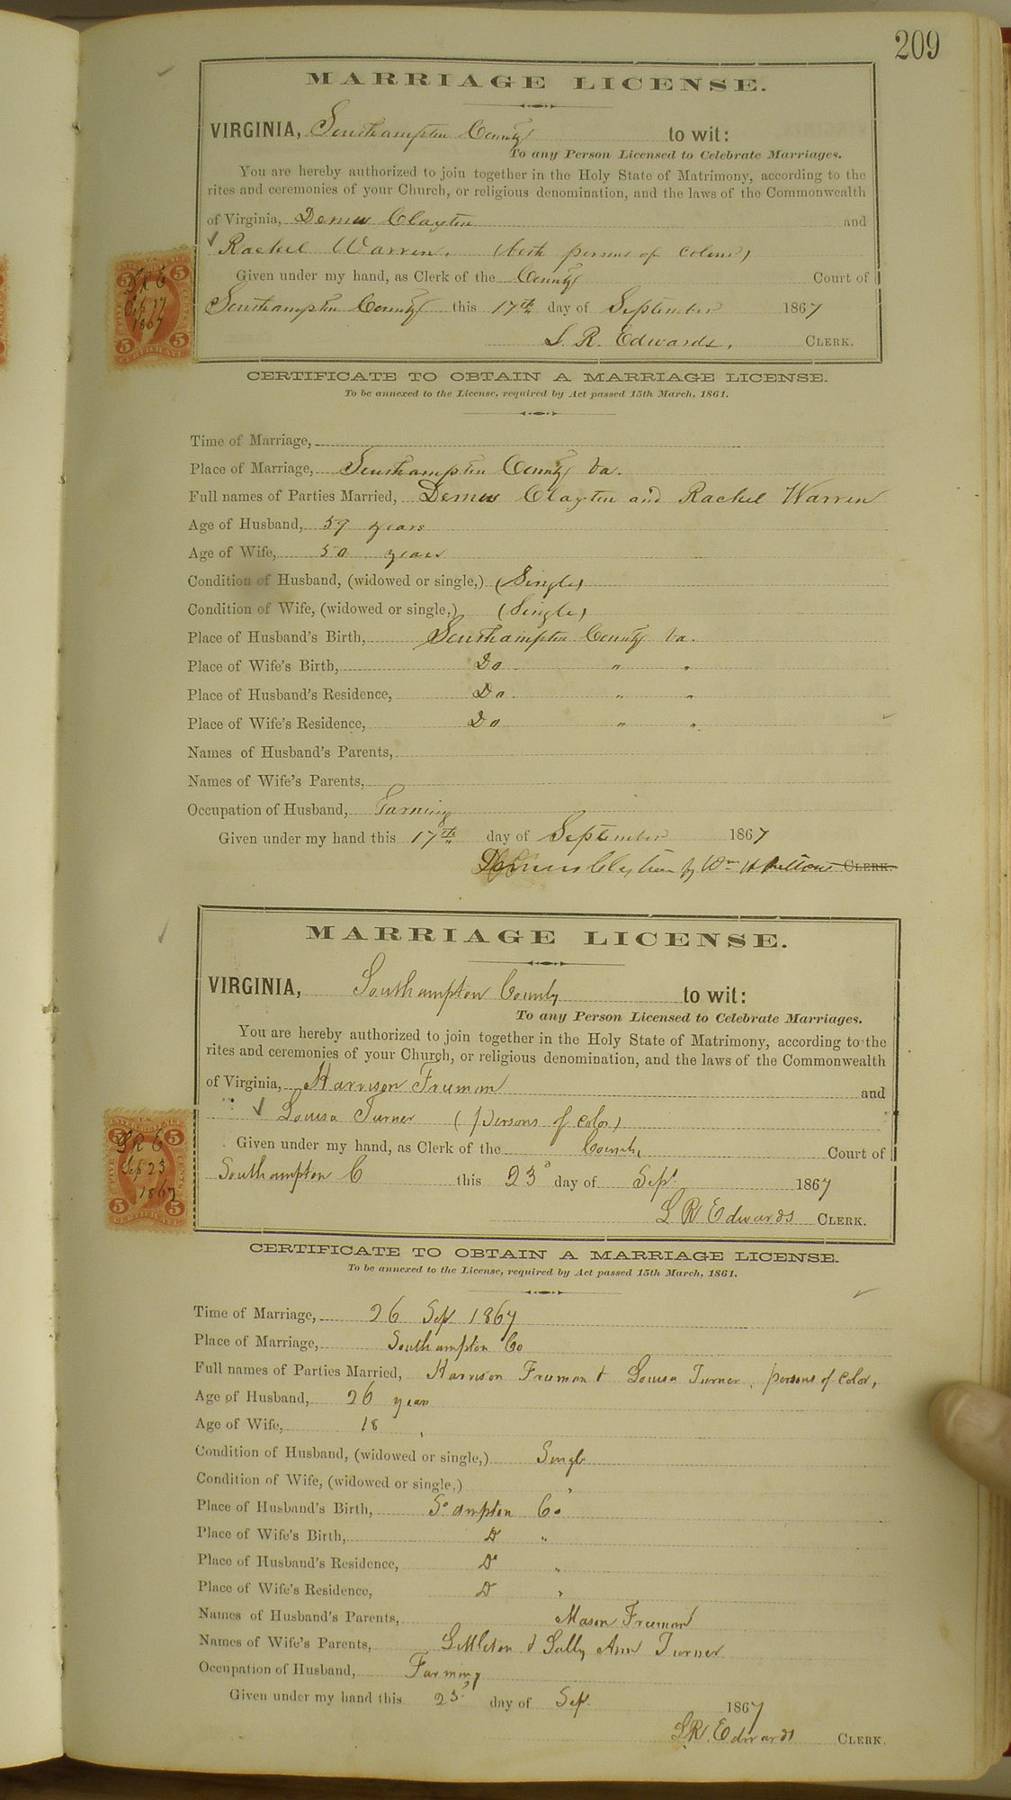 209
MARRIAGE LICENSE.
VIRGINIA, Southampton County to wit:
To any Person Licensed to Celebrate Marriages.
You are hereby authorized to join together in the Holy State of Matrimony, according to the
rites and ceremonies of your Church, or religious denomination, and the laws of the Commonwealth
of Virginia, Demus Clayton and
Rachel Warren. (both persons of colour)
Given under my hand, as Clerk of the County Court of
Southampton County this 17th day of September 1867
L. R. Edwards. CLERK.
5 5
L R E
Sep 17
1867
5 5
CERTIFICATE
CERTIFICATE TO OBTAIN A MARRIAGE LICENSE.
To be annexed to the License, required by Act passed 15th March, 1861.
Time of Marriage,
Place of Marriage, Southampton County Va.
Full names of Parties Married, Demus Clayton and Rachel Warren
Age of Husband, 59 years
Age of Wife, 50 years
Condition of Husband, (widowed or single,) (Single)
Condition of Wife, (widowed or single,) (Single)
Place of Husband's Birth, Southampton County Va.
Place of Wife's Birth, Do " "
Place of Husband's Residence, Do. " "
Place of Wife's Residence, Do " "
Names of Husband's Parents,
Names of Wife's Parents,
Occupation of Husband, Farming
Given under my hand this 17th day of September 1867
Demus Clayton by Wm H CLERK.
MARRIAGE LICENSE.
VIRGINIA, Southampton County to wit:
To any Person Licensed to Celebrate Marriages.
You are hereby authorized to join together in the Holy State of Matrimony, according to the
rites and ceremonies of your Church, or religious denomination, and the laws of the Commonwealth
of Virginia, Harrison Freeman and
Louisa Turner (persons of color)
Given under my hand, as Clerk of the County Court of
Southampton C this 23d day of Sept 1867
L R Edwards CLERK.
5 5
L R E
Sep 23
1867
5 5
CERTIFICATE
CERTIFICATE TO OBTAIN A MARRIAGE LICENSE.
To be annexed to the License, required by Act passed 15th March, 1861.
Time of Marriage, 26 Sep 1867
Place of Marriage, Southampton Co
Full names of Parties Married, Harrison Freeman & Louisa Turner, persons of color,
Age of Husband, 26 years
Age of Wife, 18 "
Condition of Husband, (widowed or single,) Single
Condition of Wife, (widowed or single,) "
Place of Husband's Birth, So ampton Co
Place of Wife's Birth, Do "
Place of Husband's Residence, Do "
Place of Wife's Residence, Do "
Names of Husband's Parents, Mason Freeman
Names of Wife's Parents, Littleton & Sally Ann Turner
Occupation of Husband, Farming
Given under my hand this 23d day of Sep. 1867
L R. Edwards CLERK.